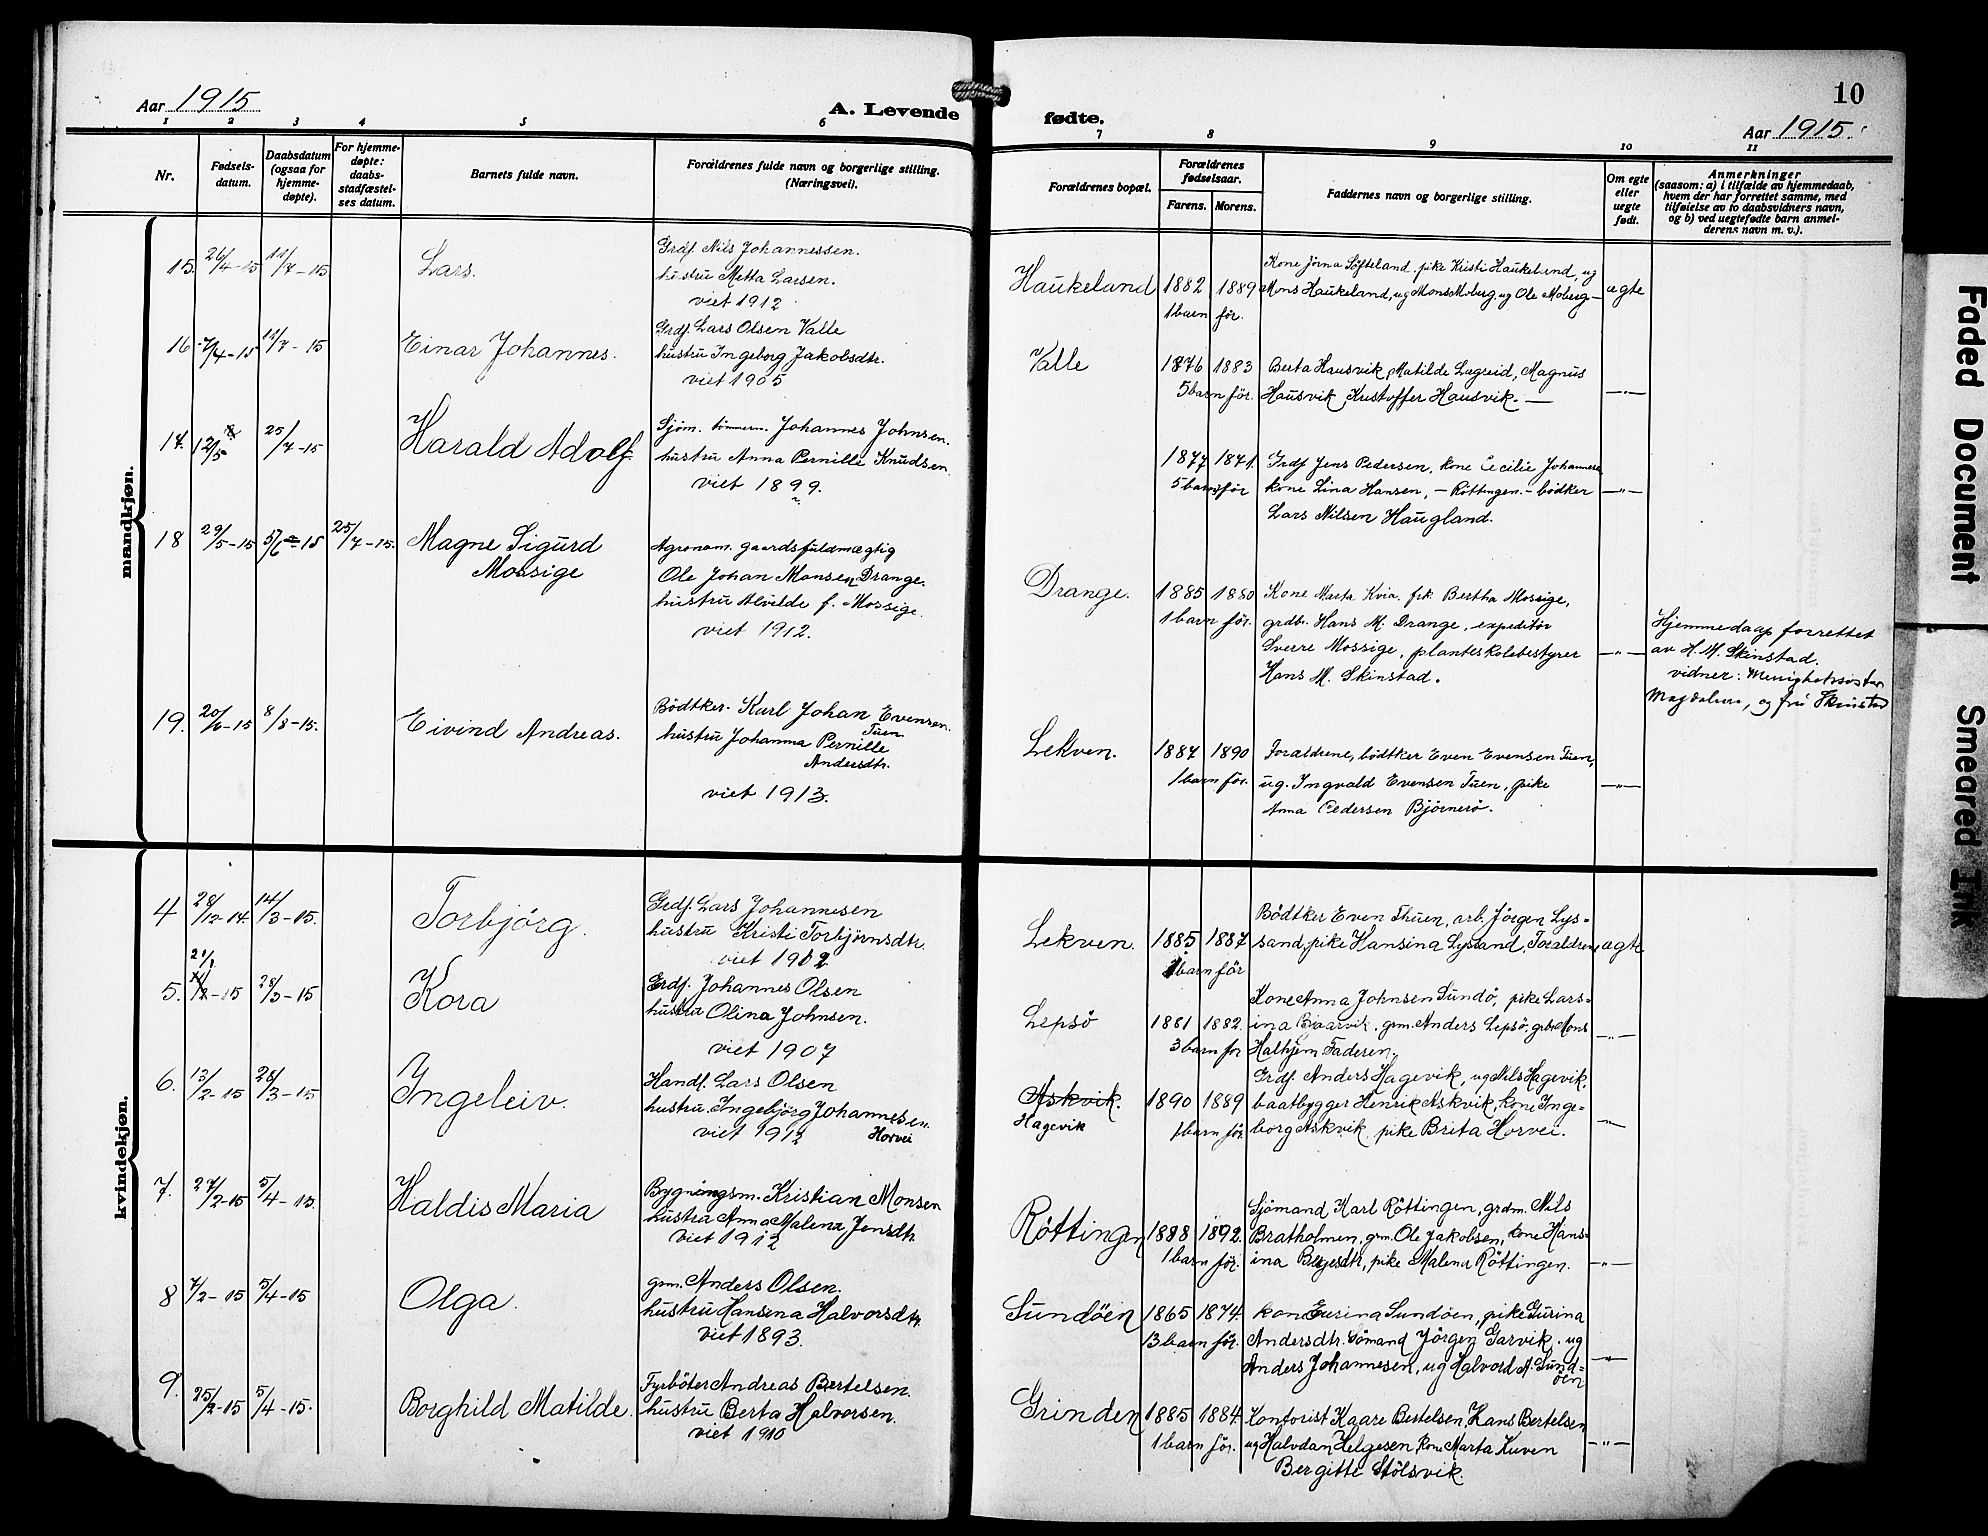 Aar 1915
A. Levende
1 2 3 4 5 6
Nr.
Fødsels-
datum.
Daabsdatum
(ogsaa for
hjemme-
døpte).
For hjemme-
døpte:
daabs-
stadfæstel-
ses datum.
Barnets fulde navn.
Forældrenes fulde navn og borgerlige stilling.
(Næringsvei).
mandkjøn.
15. 26/4-15 11/7-15 Lars.
Grdf. Nils Johannessen.
hustru Metta Larsen.
viet 1912
16 7/4-15 11/7-15 Einar Johannes.
Grdf. Lars Olsen Valle
hustru Ingeborg Jakobsdtr.
viet 1905
17. 12/5 25/7-15 Harald Adolf
Sjøm. tømmerm. Johannes Johnsen.
hustru Anna Pernille Knudsen
viet 1899.
18 29/5-15 5/6-15 25/7-15. Magne Sigurd
Mossige
Agronom. gaardsfuldmægtig
Ole Johan Monsen Drange.
hustru Alvilde f. Mossige.
viet 1912.
19. 20/6-15 8/8-15. Eivind Andreas.
Bødtker. Karl Johan Evensen
Tuen.
hustru Johanna Pernille
Andersdtr.
viet 1913.
kvindekjøn.
4 28/12-14. 14/3-15. Torbjörg.
Grdf. Lars Johannesen
hustru Kristi Torbjørnsdtr.
viet 1912
5. 21/1-15 28/3-15 Kora
Grdf. Johannes Olsen
hustru Olina Johnsen.
viet 1907
6. 13/2-15 28/3-15 Ingeleiv.
Handl. Lars Olsen
hustru. Ingebjörg Johannesen.
Horvei
viet 1913
7. 27/2-15 5/4-15. Haldis Maria
Bygningsm. Kristian Monsen
hustru Anna Malena Jensdtr.
viet 1912
8 7/2-15 5/4-15 Olga.
grm. Anders Olsen.
hustru Hansena Halvorsdtr.
viet 1893.
9. 25/2-15 5/4-15. Borghild Matilde.
Fyrbøter Andreas Bertelsen.
hustru Berta Halvorsen.
viet 1910
10
fødte.
Aar 1915
7 8 9 10 11
Forældrenes bopæl.
Forældrenes
fødselsaar.
Farens. Morens.
Faddernes navn og borgerlige stilling.
Om egte
eller
uegte
født.
Anmerkninger
(saasom: a) i tilfælde av hjemmedaab,
hvem der har forrettet samme, med
tilføielse av to daabsvidners navn,
og b) ved uegtefødte barn anmel-
derens navn m. v.).
Haukeland 1882 1889
1 barn før.
Kone Jorna Søfteland. pike Kristi Haukeland, ug
Mons Haukeland, ug Mons Moberg. ug Ole Moberg—
ægte
Valle 1876 1883
5 barn för.
Berta Hausvik, Matilde Lægreid, Magnus
Hausvik Kristoffer Hausvik. —
—"—
1877 1871.
5 barn før
Grdf Jens Pedersen, kone Cecilie Johannesen
kone Lina Hansen, — Röttingen. — bödker
Lars Nilsen Haugland.
—"—
Drange. 1885 1880
1 barn för.
Kone Marta Kvia. frk. Bertha Mossige,
grdbr. Hans M. Drange, expeditör
Sverre Mossige, planteskolebestyrer
Hans M. Skinstad.
—"—
Hjemmedaap forrettet
av H. M. Skinstad.
vidner: Menighetssøster
Magdalene, og fru Skinstad
Lekven. 1887 1890
1 barn før.
Foraldrene, bödtker Even Evensen Tuen,
ug. Ingvald Evensen Tuen, pike
Anna Pedersen Bjørnerö.
—"—
Lekven. 1885 1887
1 barn för
Bödtker Even Thuen, arb. Jörgen Lys=
sand, pike Hansina Lyssand, Foraldrene
ægte
Lepsö 1881 1882.
3 barn før
Kone Anna Johnsen Sundö, pike Lars=
ina Bjaarvik. grm. Anders Lepsö. grbr. Mons
Halhjem Faderen.
—"—
Askvik.
Hagevik
1890 1889
1 barn för.
Grdf. Anders Hagevik, ug Nils Hagevik.
baatbygger Henrik Askvik, kone Inge=
borg Askvik, pike Brita Horvei.
—"—
Röttingen 1888 1892.
1 barn för.
Sjömand Karl Röttingen, grdm. Nils
Bratholmen, grm. Ole Jakobsen, kone Hans=
ina Børjesdtr, pike Malena Röttingen.
—"—
Sundöen 1865 1874.
13 barn för.
kone Eurina Sundöen, pike Gurina
Andersdtr. Sömand Jörgen Garvik. ug
Anders Johannesen, ug Halvord A. Sund=
öen
—"—
Grinden 1885 1884.
1 barn for.
Kontorist Kaare Bertelsen, Hans Bertelsen
ug Halvdan Helgesen, kone Marta Kuven
Bergitte Stölsvik.
—"—
Faded Document
Smeared Ink